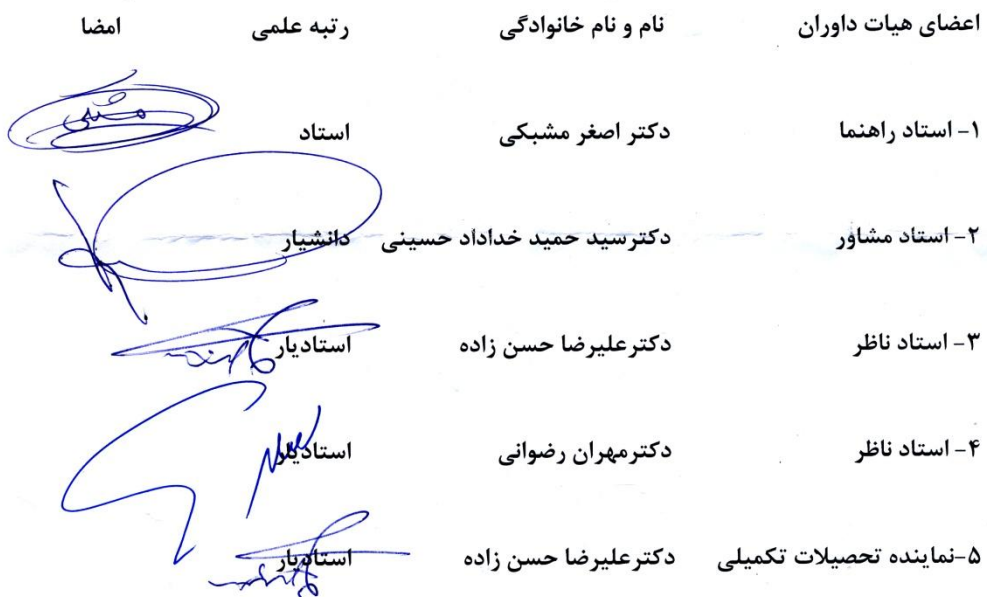 اعضای هیات داوران نام و نام خانوادگی رتبه علمی امضا
مشبکی
۱- استاد راهنما دکتر اصغر مشبکی استاد
۲- استاد مشاور دکترسید حمید خداداد حسینی دانشیار
۳- استاد ناظر دکترعلیرضا حسن زاده استادیار
۴- استاد ناظر دکترمهران رضوانی استادیار
۵-نماینده تحصیلات تکمیلی دکترعلیرضا حسن زاده استادیار